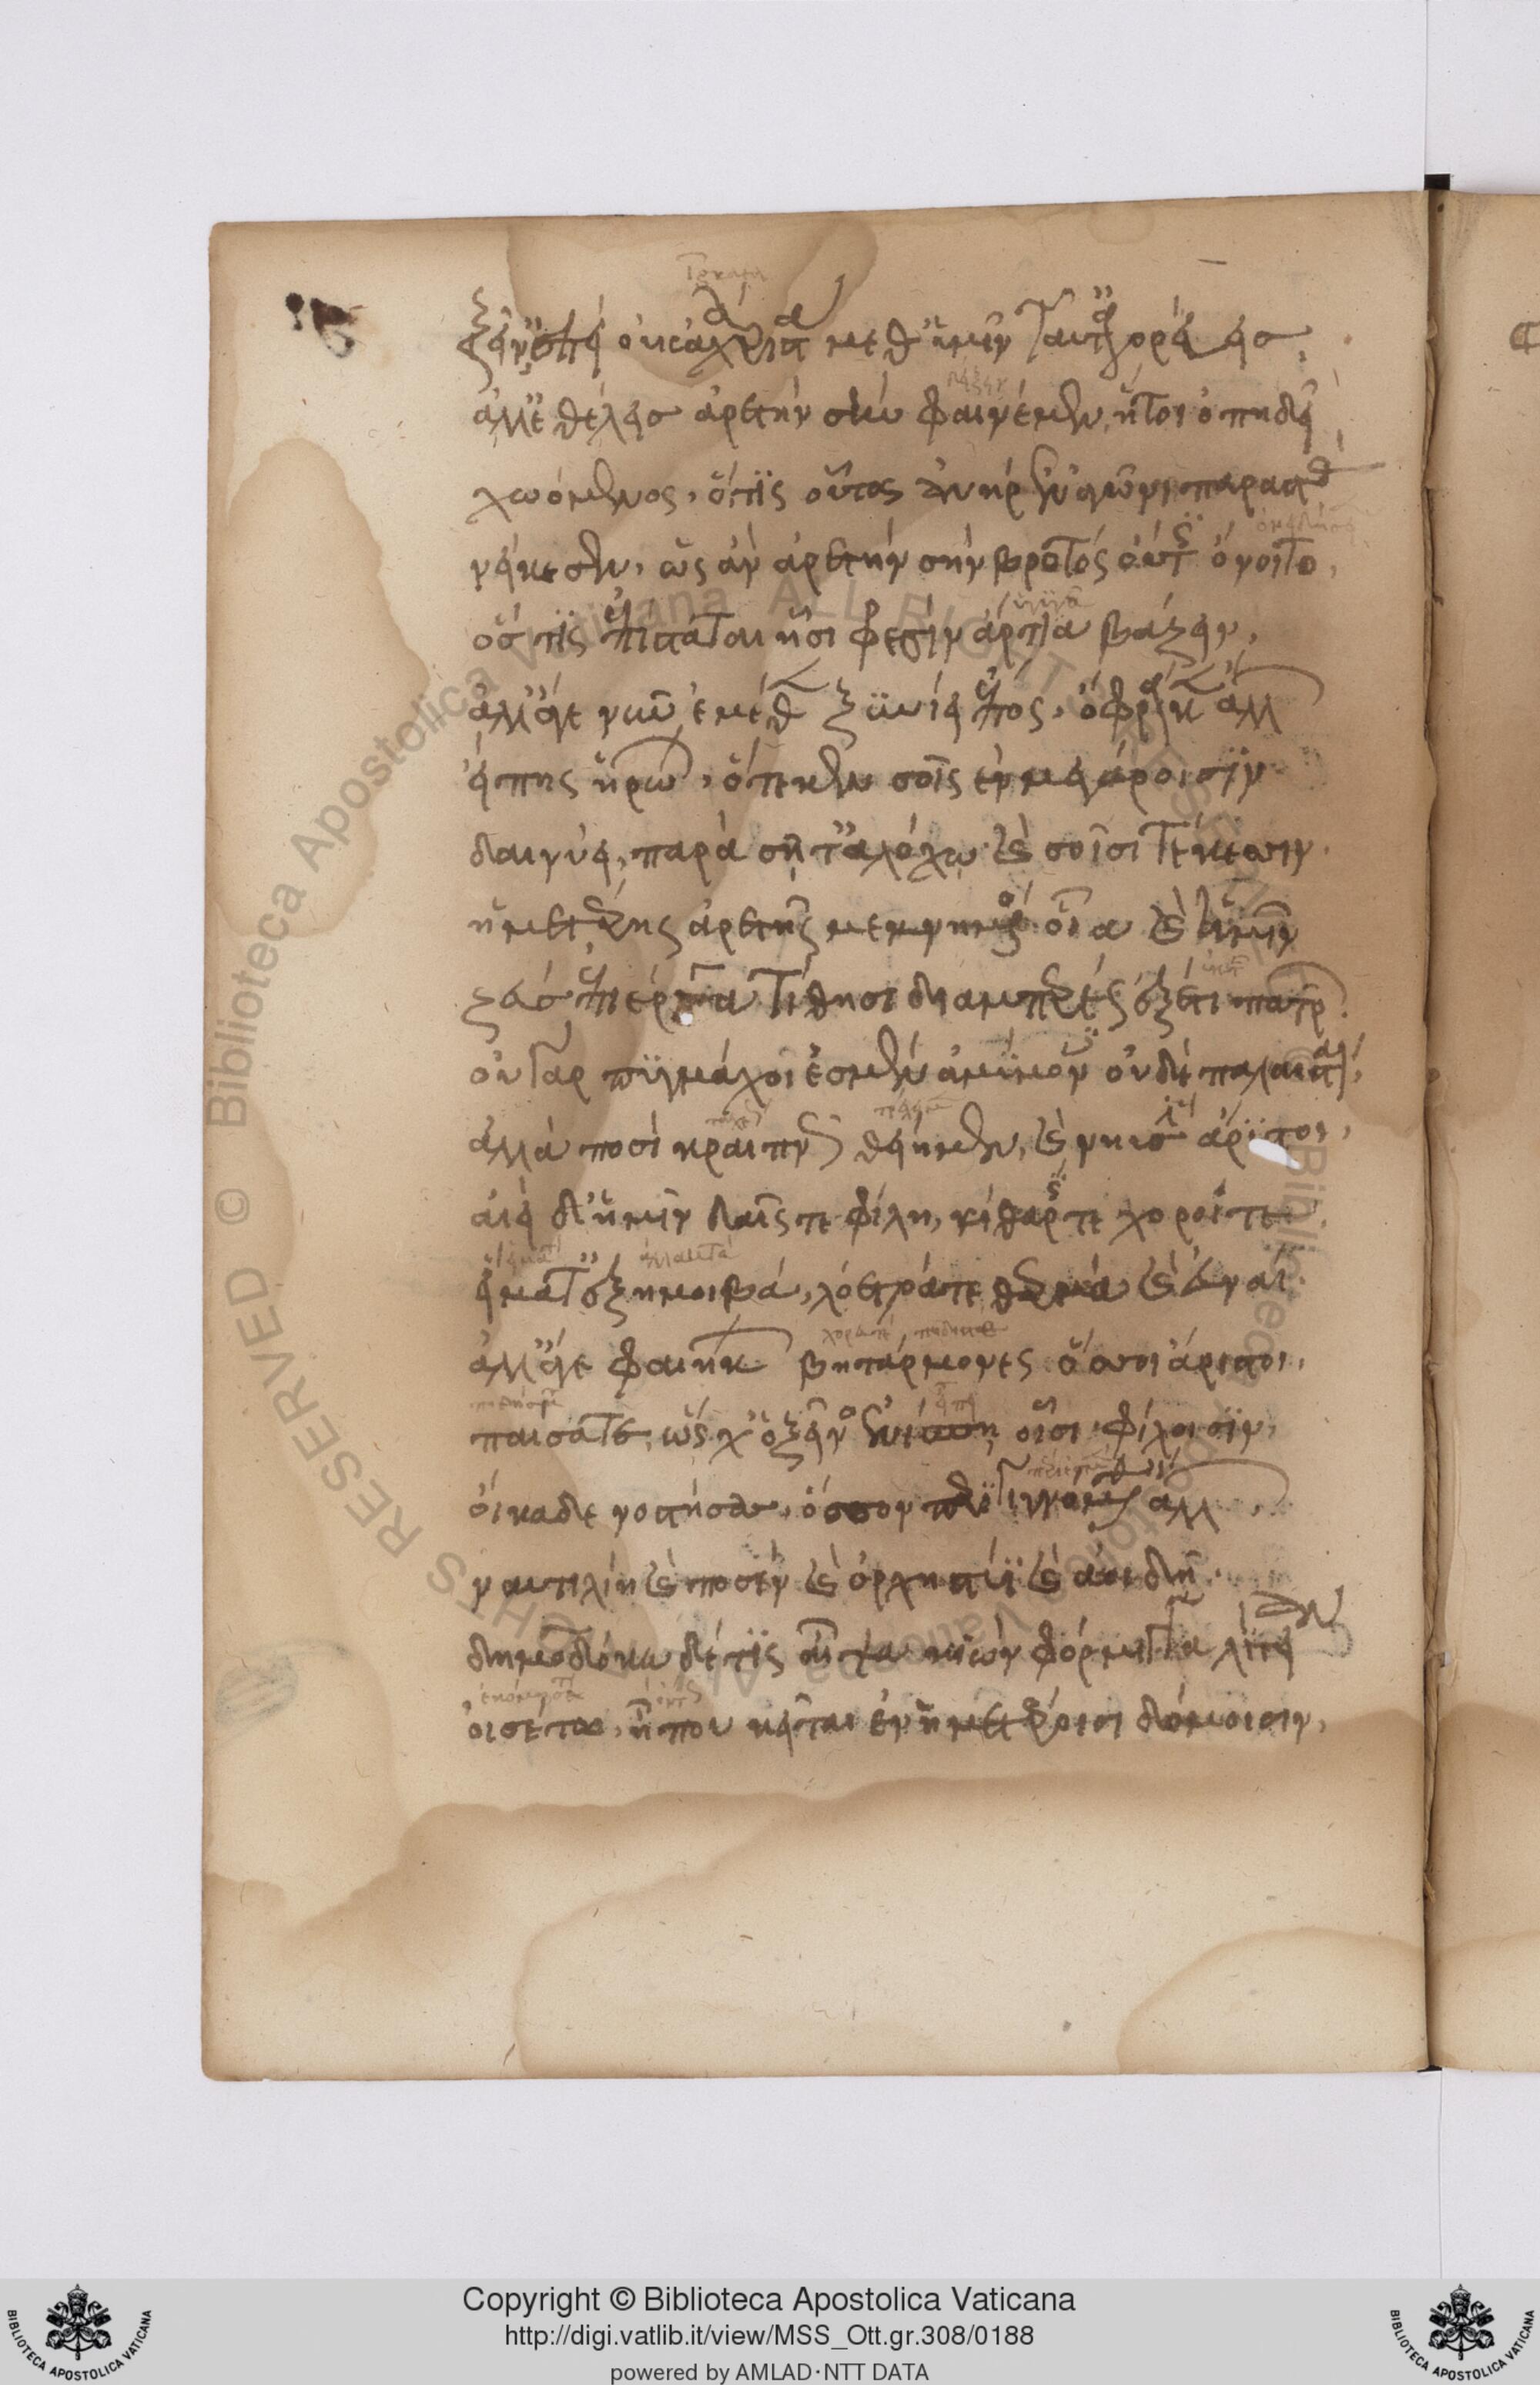 ξεῖν' ἐπεὶ οὐκ ἀχάριστα μεθ' ἡμῖν ταῦτ' ἀγορεύεις,
ἀλλ' ἐθέλεις ἀρετὴν σὴν φαινέμεν, ἥ τοι ὀπηδεῖ
χωόμενος, ὅτι σ' οὗτος ἀνὴρ ἐν ἀγῶνι παραστὰς
νείκεσεν, ὡς ἂν ἀρετὴν σὴν βροτὸς οὔτις ὄνοιτο,
ὅστις ἐπίσταται ᾗσι φρεσὶν ἄρτια βάζειν,
ἀλλ' ἄγε νῦν ἐμέθεν ξυνίει ἔπος, ὄφρα καὶ ἄλλῳ
εἴπῃς ἡρώων, ὅτε κεν σοῖς ἐν μεγάροισιν
δαινύῃ παρὰ σῇ τ' ἀλόχῳ καὶ σοῖσι τέκεσσιν
ἡμετέρης ἀρετῆς μεμνημένος, οἷα καὶ ἡμῖν
Ζεὺς ἐπὶ ἔργα τίθησι διαμπερὲς ἐξέτι πατρῶν.
οὐ γὰρ πυγμάχοι ἐσμὲν ἀμύμονες οὐδὲ παλαισταί,
ἀλλὰ ποσὶ κραιπνῶς θέομεν, καὶ νηυσὶν ἄριστοι,
αἰεὶ δ' ἡμῖν δαίς τε φίλη, κίθαρίς τε χοροί τε
εἵματά τ' ἐξημοιβά, λοετρά τε θερμὰ καὶ εὐναί.
ἀλλ' ἄγε φαιήκων βητάρμονες ὅσσοι ἄριστοι,
παίσατε, ὥς χ' ὁ ξεῖνος ἐνίσπῃ οἷσι φίλοισιν,
οἴκαδε νοστήσας, ὅσσον περιγιγνόμεθ' ἄλλων
ναυτιλίῃ καὶ ποσὶν καὶ ὀρχηστυῖ καὶ ἀοιδῇ.
δημοδόκῳ δέ τις αἶψα κιὼν φόρμιγγα λίγειαν
οἰσέτω, ἥ που κεῖται ἐν ἡμετέροισι δόμοισιν,
Biblioteca Apostolica Vaticana ALL RIGHTS RESERVED ©
Copyright © Biblioteca Apostolica Vaticana
http://digi.vatlib.it/view/MSS_Ott.gr.308/0188
powered by AMLAD·NTT DATA
BIBLIOTECA APOSTOLICA VATICANA
BIBLIOTECA APOSTOLICA VATICANA